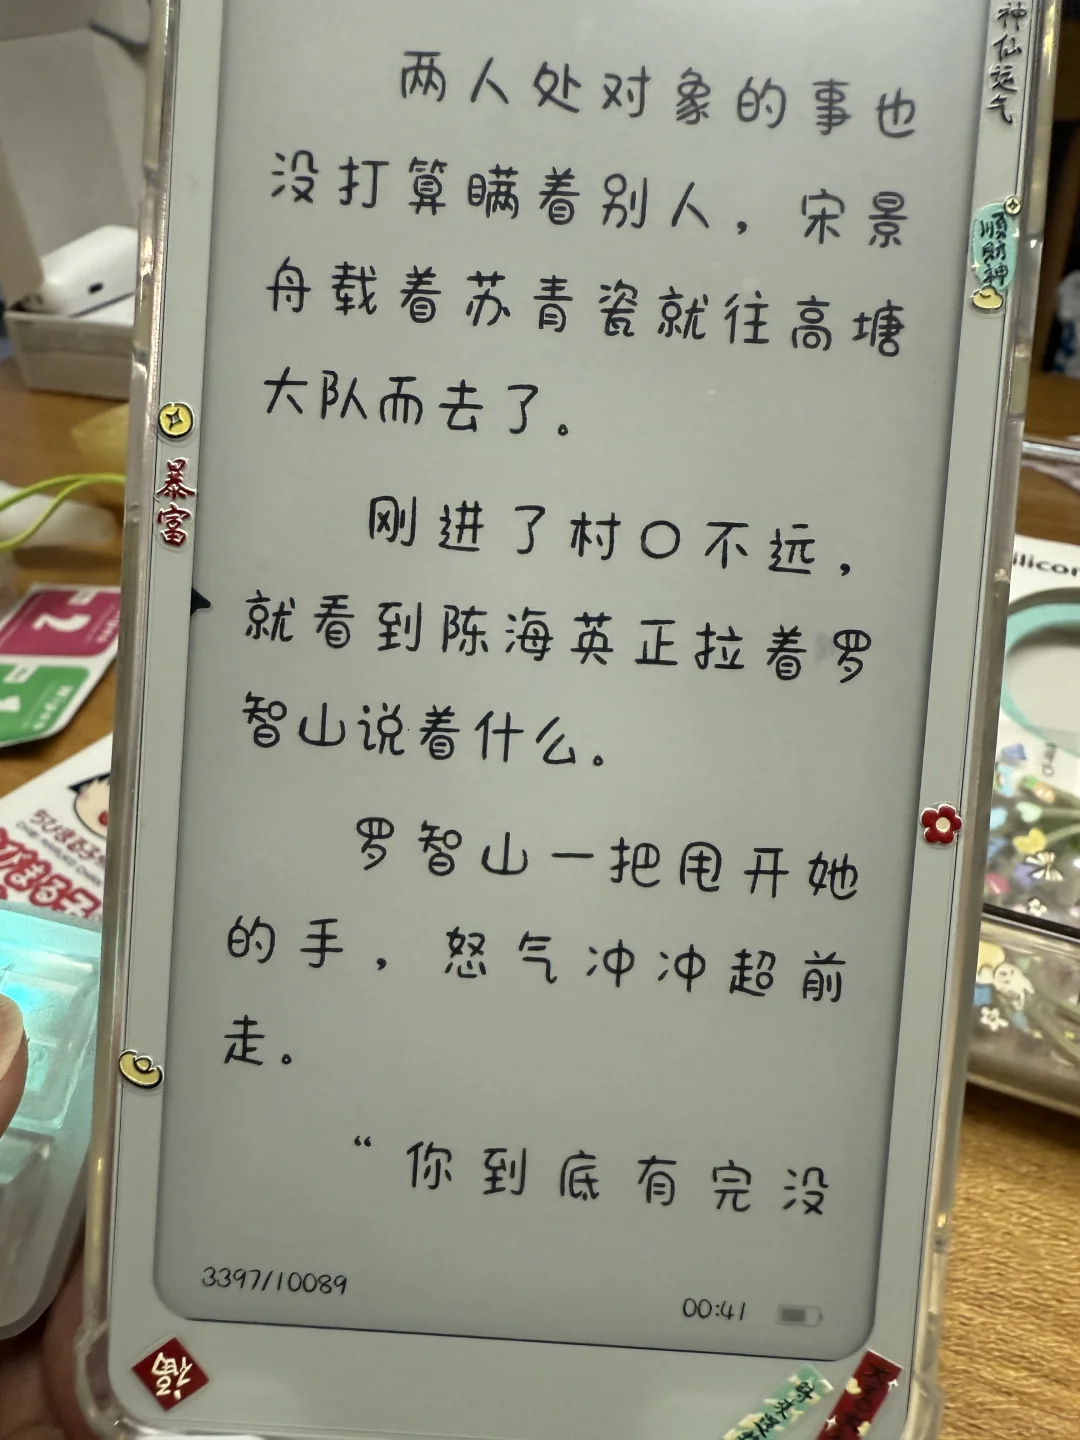 神仙运气
两人处对象的事也
没打算瞒着别人，宋景
舟载着苏青瓷就往高塘
大队而去了。
顺财神
暴富
刚进了村口不远，
就看到陈海英正拉着罗
智山说着什么。
罗智山一把甩开她
的手，怒气冲冲超前
走。
“你到底有完没
3397/10089
00:41
福
2
1